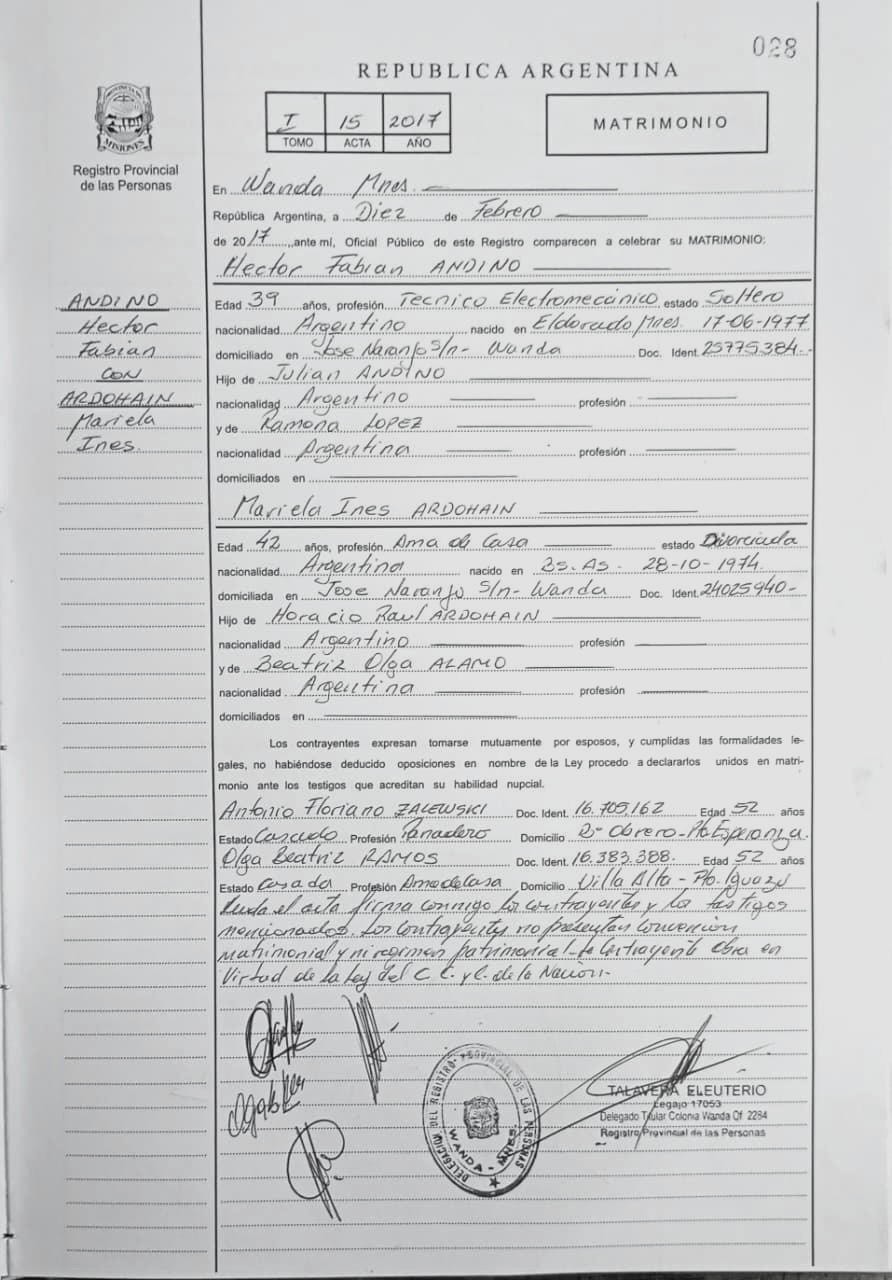 028
REPUBLICA ARGENTINA
I 15 2017
TOMO ACTA AÑO
MATRIMONIO
PROVINCIA DE MISIONES
Registro Provincial
de las Personas
En Wanda Mnes.
República Argentina, a Diez de Febrero
de 2017, ante mí, Oficial Público de este Registro comparecen a celebrar su MATRIMONIO:
Hector Fabian ANDINO
ANDINO
Hector
Fabian
CON
ARDOHAIN
Mariela
Ines.
Edad 39 años, profesión Tecnico Electromecánico estado Soltero
nacionalidad Argentino, nacido en Eldorado Mnes. 17-06-1977
domiciliado en Jose Naranjo S/n- Wanda Doc. Ident. 25775.384.-
Hijo de Julian ANDINO
nacionalidad Argentino profesión
y de Ramona LOPEZ
nacionalidad Argentina profesión
domiciliados en
Mariela Ines ARDOHAIN
Edad 42 años, profesión Ama de Casa estado Divorciada
nacionalidad Argentina nacido en Bs.As- 28-10-1974.
domiciliada en Jose Naranjo S/n- Wanda Doc. Ident. 24025940-
Hijo de Horacio Raul ARDOHAIN
nacionalidad Argentino profesión
y de Beatriz Olga ALAMO
nacionalidad Argentina profesión
domiciliados en
Los contrayentes expresan tomarse mutuamente por esposos, y cumplidas las formalidades le-
gales, no habiéndose deducido oposiciones en nombre de la Ley procedo a declararlos unidos en matri-
monio ante los testigos que acreditan su habilidad nupcial.
Antonio Floriano ZALEWSKI Doc. Ident. 16.705.162 Edad 52 años
Estado Casado Profesión Panadero Domicilio Bº Obrero-Pto Esperanza.
Olga Beatriz RAMOS Doc. Ident. 16.383.388. Edad 52 años
Estado Casada Profesión Ama de Casa Domicilio Villa Alta - Pto. Iguazú
Leida el acta firma conmigo los contrayentes y los testigos
mencionados. Los contrayentes no presentan convencion
matrimonial y ni regimen patrimonial- obra en
Virtud de la Ley del C. C. y C. de la Nación-
DELEGACION DEL REGISTRO PROVINCIAL DE LAS PERSONAS
WANDA - MNES.
TALAVERA ELEUTERIO
Legajo 17053
Delegado Titular Colonia Wanda Of. 2284
Registro Provincial de las Personas